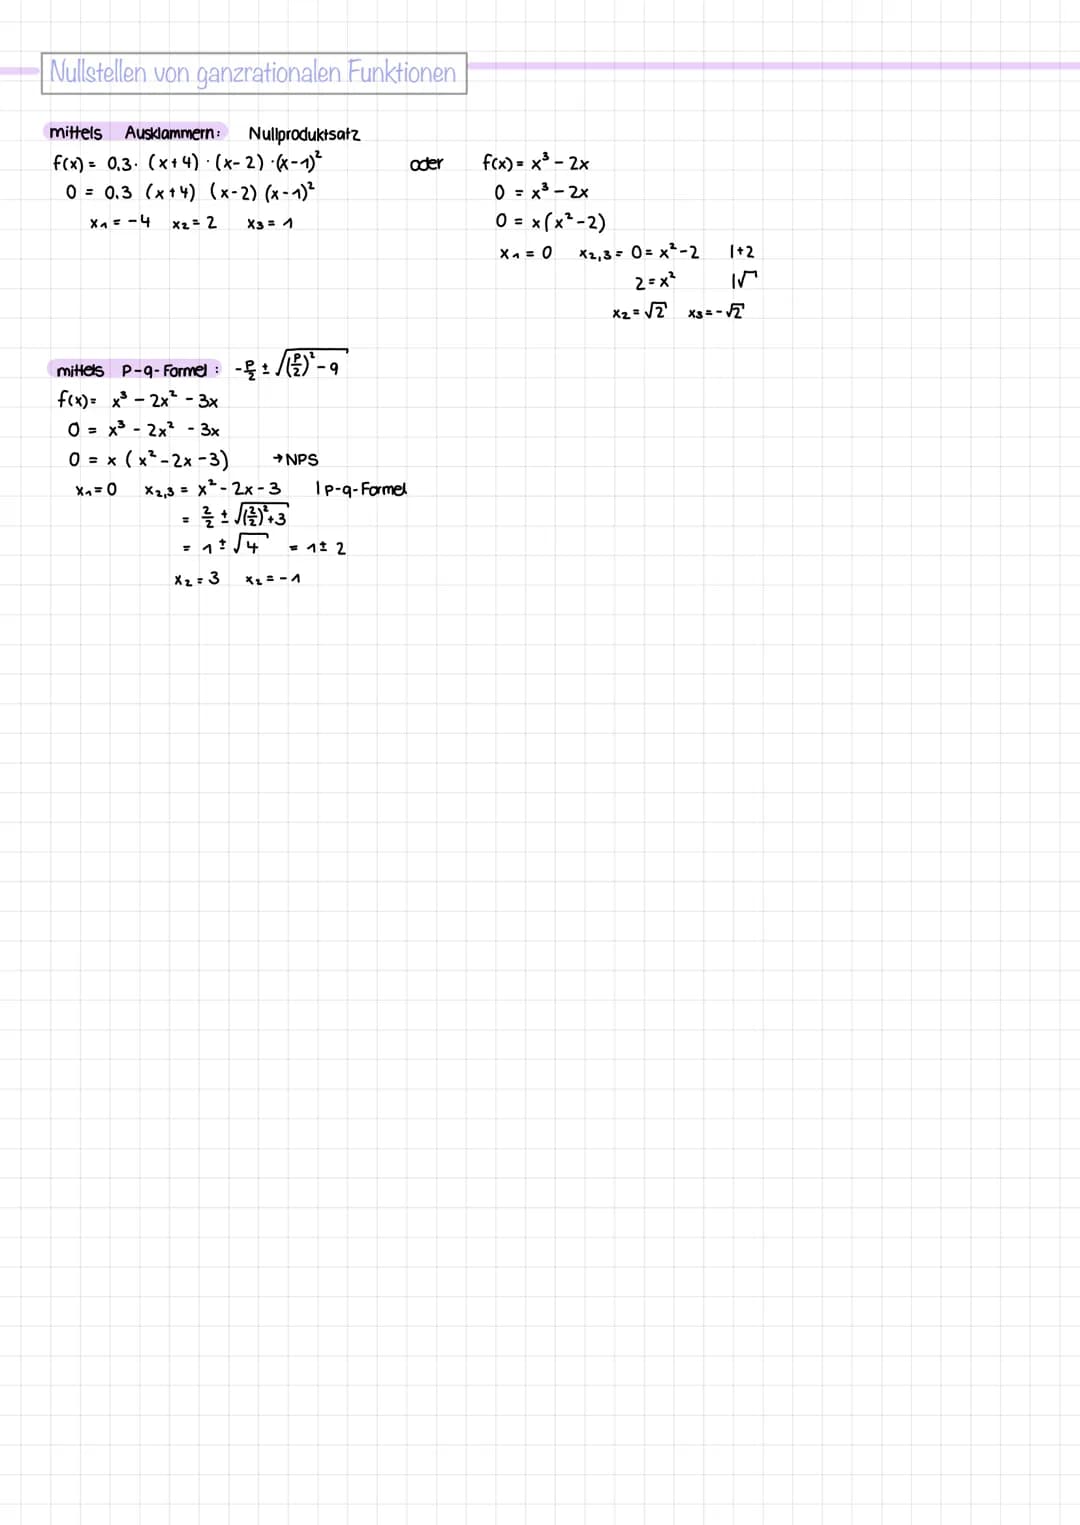 Nullstellen von ganzrationalen Funktionen
mittels Ausklammern: Nullproduktsatz
f(x) = 0,3 · (x+4) · (x-2) · (x-1)²
0 = 0.3 (x+4) (x-2) (x-1)²
x₁ = -4 x₂ = 2 x₃ = 1
oder
f(x) = x³ - 2x
0 = x³ - 2x
0 = x(x²-2)
x₁ = 0 x₂,₃ = 0 = x²-2 |+2
2 = x² |√
x₂ = √2 x₃ = -√2
mittels P-q-Formel: -p/2 ± √((p/2)² - q)
f(x) = x³ - 2x² - 3x
0 = x³ - 2x² - 3x
0 = x (x² - 2x - 3) → NPS
x₁ = 0 x₂,₃ = x² - 2x - 3 | p-q-Formel
= 2/2 ± √((2/2)² + 3)
= 1 ± √4 = 1 ± 2
x₂ = 3 x₂ = -1